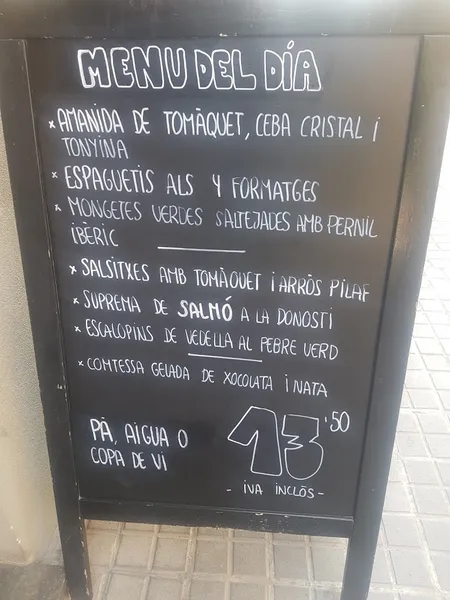 MENU DEL DÍA
x AMANIDA DE TOMÀQUET, CEBA CRISTAL I
TONYINA
x ESPAGUETIS ALS 4 FORMATGES
x MONGETES VERDES SALTEJADES AMB PERNIL
IBERIC
x SALSITXES AMB TOMÀQUET I ARRÒS PILAF
x SUPREMA DE SALMÓ A LA DONOSTI
x ESCALOPINS DE VEDELLA AL PEBRE VERD
x COMTESSA GELADA DE XOCOLATA I NATA
PÀ, AIGUA O
COPA DE VI
13'50
- IVA INCLÒS -